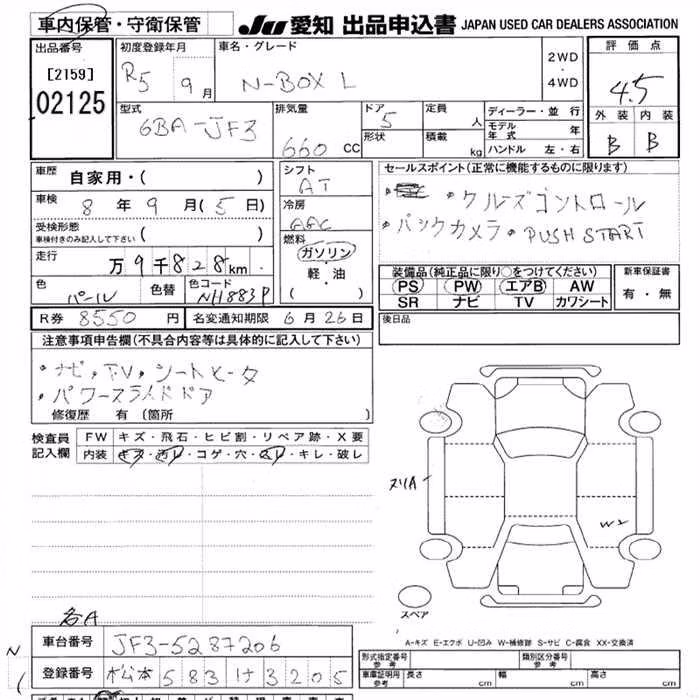 車内保管・守衛保管
JU 愛知 出品申込書 JAPAN USED CAR DEALERS ASSOCIATION
出品番号
[2159]
02125
初度登録年月
R5 9月
車名・グレード
N-BOX L
2WD
・
4WD
評価点
4.5
外装 内装
B B
型式
6BA-JF3
排気量
660 cc
ドア
5
形状
定員
人
積載
kg
ディーラー・並行
モデル年式 年
ハンドル 左・右
車歴
自家用・( )
車検
8年9月(5日)
受検形態
車検付きのみ記入して下さい ( )
走行
万9千828km
色
パール
色替
色コード
NH883P
シフト
AT
冷房
AAC
燃料
ガソリン
・
軽・油
( )
セールスポイント(正常に機能するものに限ります)
・クルーズコントロール
・バックカメラ ・PUSH START
装備品(純正品に限り○をつけてください)
PS PW エアB AW
SR ナビ TV カワシート
新車保証書
有・無
R券 8550円
名変通知期限 6月26日
後日品
注意事項申告欄(不具合内容等は具体的に記入して下さい)
・ナビ,TV,シートヒータ
・パワースライドドア
修復歴 有(箇所 )
検査員
記入欄
FW キズ・飛石・ヒビ割・リペア跡・X要
内装 キズ・汚レ・コゲ・穴・スレ・キレ・破レ
ヌリA
W2
スペア
A-キズ E-エクボ U-凹み W-補修跡 S-サビ C-腐食 XX-交換済
各A
車台番号
JF3-5287206
登録番号
松本 583 け 3205
型式指定番号
参考
類別区分番号
参考
車庫証明用
参考
長さ cm
幅 cm
高さ cm